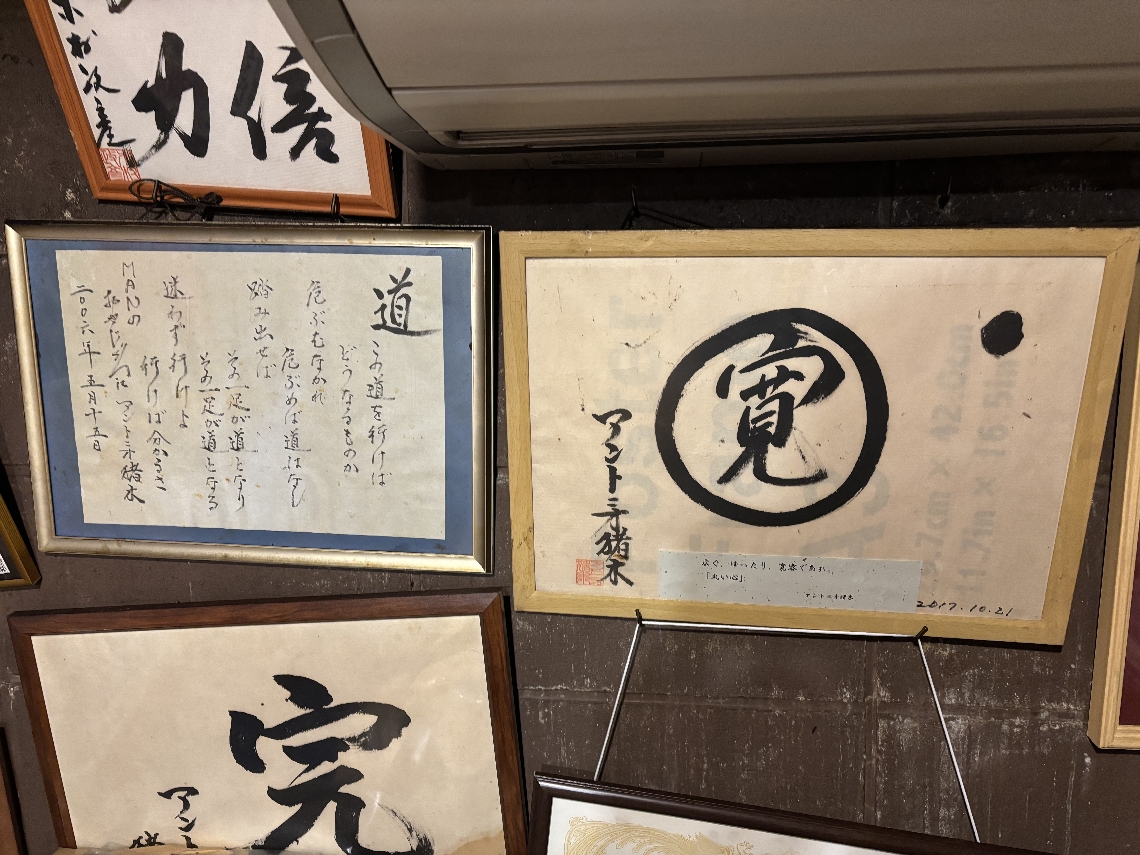 信
力
道
この道を行けば
どうなるものか
危ぶむなかれ
危ぶめば道はなし
踏み出せば
その一足が道となり
その一足が道となる
迷わず行けよ
行けば分かるさ
アントニオ猪木
二〇〇六年 五月十五日
寛
アントニオ猪木
よく、ゆったり、寛容であれ。
「丸い心」
アントニオ猪木
2017.10.21
完